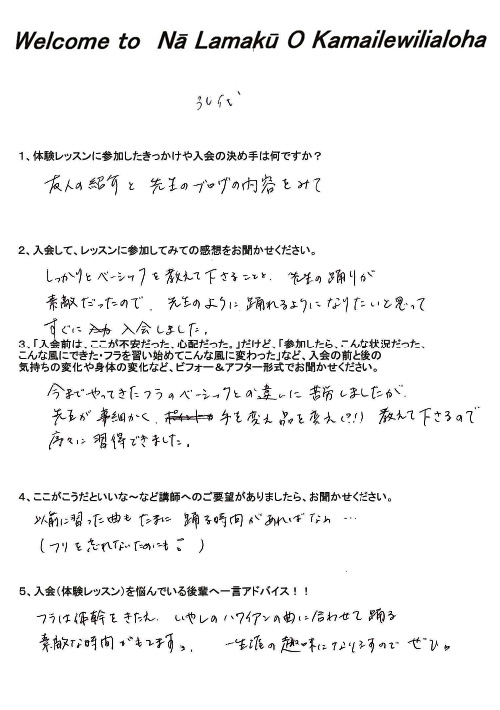 Welcome to Nā Lamakū O Kamailewilialoha
30代
1、体験レッスンに参加したきっかけや入会の決め手は何ですか？
友人の紹介と 先生のブログの内容をみて
2、入会して、レッスンに参加してみての感想をお聞かせください。
しっかりとベーシックを教えて下さることと、先生の踊りが
素敵だったので、先生のように踊れるようになりたいと思って
すぐに 入会しました。
3、「入会前は、ここが不安だった。心配だった。」だけど、「参加したら、こんな状況だった、
こんな風にできた・フラを習い始めてこんな風に変わった」など、入会の前と後の
気持ちの変化や身体の変化など、ビフォー＆アフター形式でお聞かせください。
今までやってきたフラのベーシックとの違いに苦労しましたが
先生が事細かく、手を変え品を変え(?!) 教えて下さるので
序々に習得できました。
4、ここがこうだといいな～など講師へのご要望がありましたら、お聞かせください。
以前に習った曲も たまに 踊る時間があればなぁ…
(フリを忘れないためにも！)
5、入会(体験レッスン)を悩んでいる後輩へ一言アドバイス！！
フラは体幹をきたえ、いやしのハワイアンの曲に合わせて踊る
素敵な時間がもてます。 一生涯の趣味になりますので ぜひ